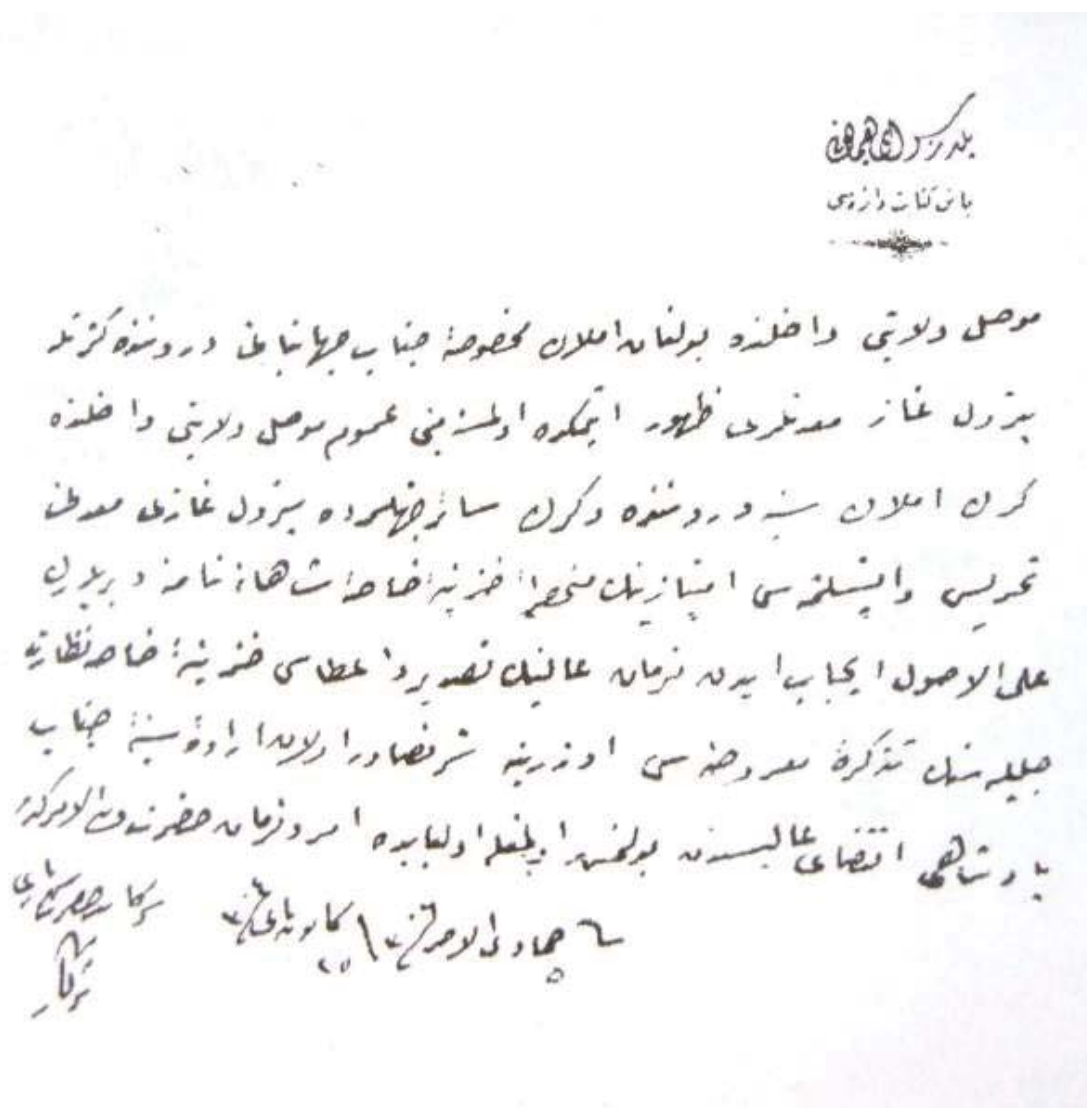 يلديز سراى همايونى
باش كتابت دائره سى
موصل ولايتى داخلنده بولنان املاك مخصوصهٔ جناب جهانبانى درونده كثرتله
پترول غاز معدنلرى ظهور ايتمكده اولمسنه مبنى عموم موصل ولايتى داخلنده
كرك املاك سنيه درونده وكرك سائر جهتلرده پترول غازى معدنى
تحريسى وايشلتمه سى امتيازينك منحصراً خزينهٔ خاصهٔ شاهانه نامنه ويريلەرك
على الاصول ايجاب ايدن فرمان عالينك تصدير واعطاسى خزينهٔ خاصه نظارت
جليله سنك تذكرهٔ معروضه سى اوزرينه شرفصادر اولان ارادهٔ سنيهٔ جناب
پادشاهى اقتضاى عاليسندن بولنمش اولمغله اولبابده امر وفرمان حضرت ولى الامركدر
فى جمادى الاخر سنه كانون ثانى سنه
سركاتب حضرت شهريارى